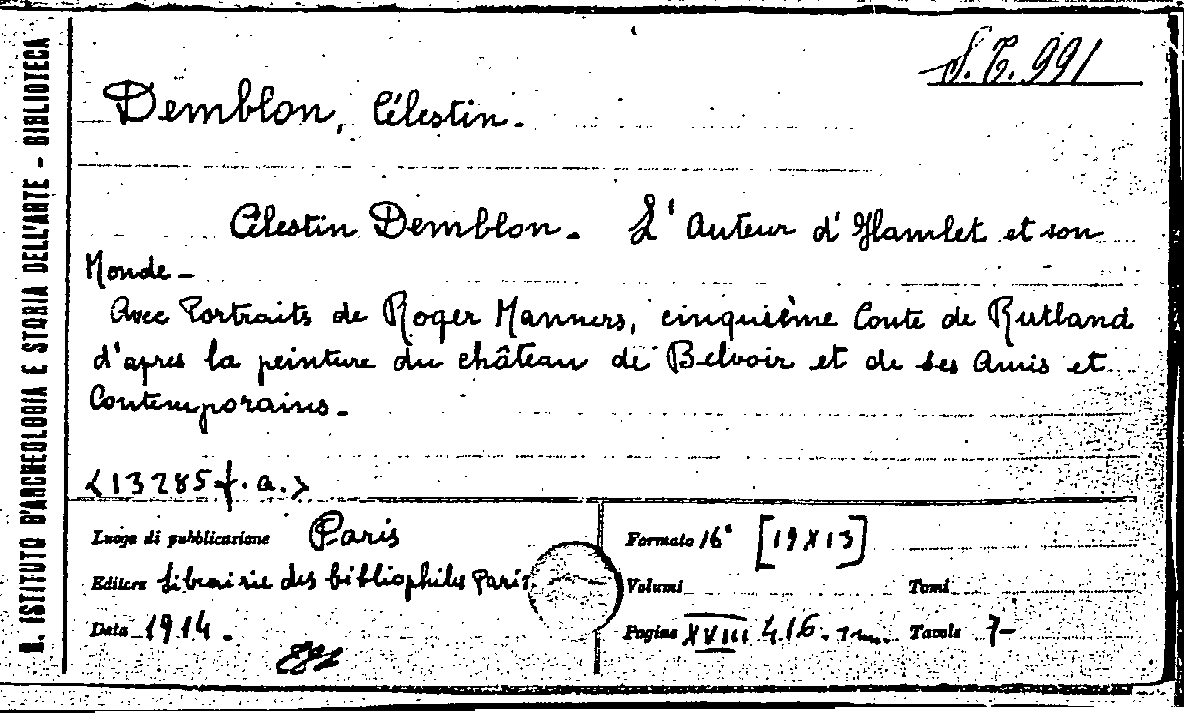 S.T. 991
Demblon, Célestin.
Célestin Demblon. L'Auteur d'Hamlet et son
Monde -
Avec Portraits de Roger Manners, cinquième Conte de Rutland
d'apres la peinture du château de Belvoir et de ses Amis et
Contemporains. -
<13285 f. a.>
Luogo di pubblicazione Paris
Editore Librairie des bibliophiles Paris
Data 1914.
Formato 16° [19X13]
Volumi Tomi
Pagine XVIII 416. Tavole 7-
R. ISTITUTO D'ARCHEOLOGIA E STORIA DELL'ARTE - BIBLIOTECA